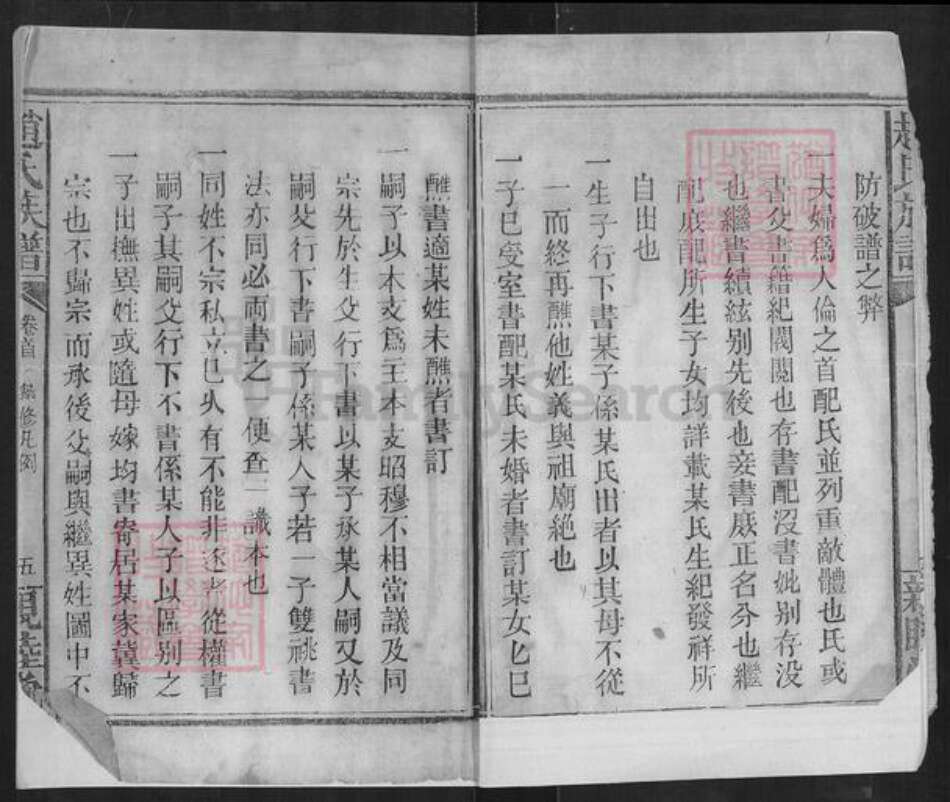 防破譜之弊
一夫婦爲人倫之首配氏並列重敵體也氏或
書父書籍紀閥閱也存書配沒書妣别存没
也繼書續絃别先後也妾書庶正名分也繼
配庶配所生子女均詳載某氏生紀發祥所
自出也
一生子行下書某子係某氏出者以其母不從
一而終再醮他姓義與祖廟絶也
一子已受室書配某氏未婚者書訂某女已
醮書適某姓未醮者書訂
一嗣子以本支爲主本支昭穆不相當議及同
宗先於生父行下書以某子承某人嗣又於
嗣父行下書嗣子係某人子若一子雙祧書
法亦同必兩書之一便查一識本也
一同姓不宗私立已久有不能非逐者從權書
嗣子其嗣父行下不書係某人子以區别之
一子出撫異姓或隨母嫁均書寄居某家冀歸
宗也不歸宗而承後父嗣與繼異姓圖中不
趙氏族譜
卷首
修凡例
五
FamilySearch